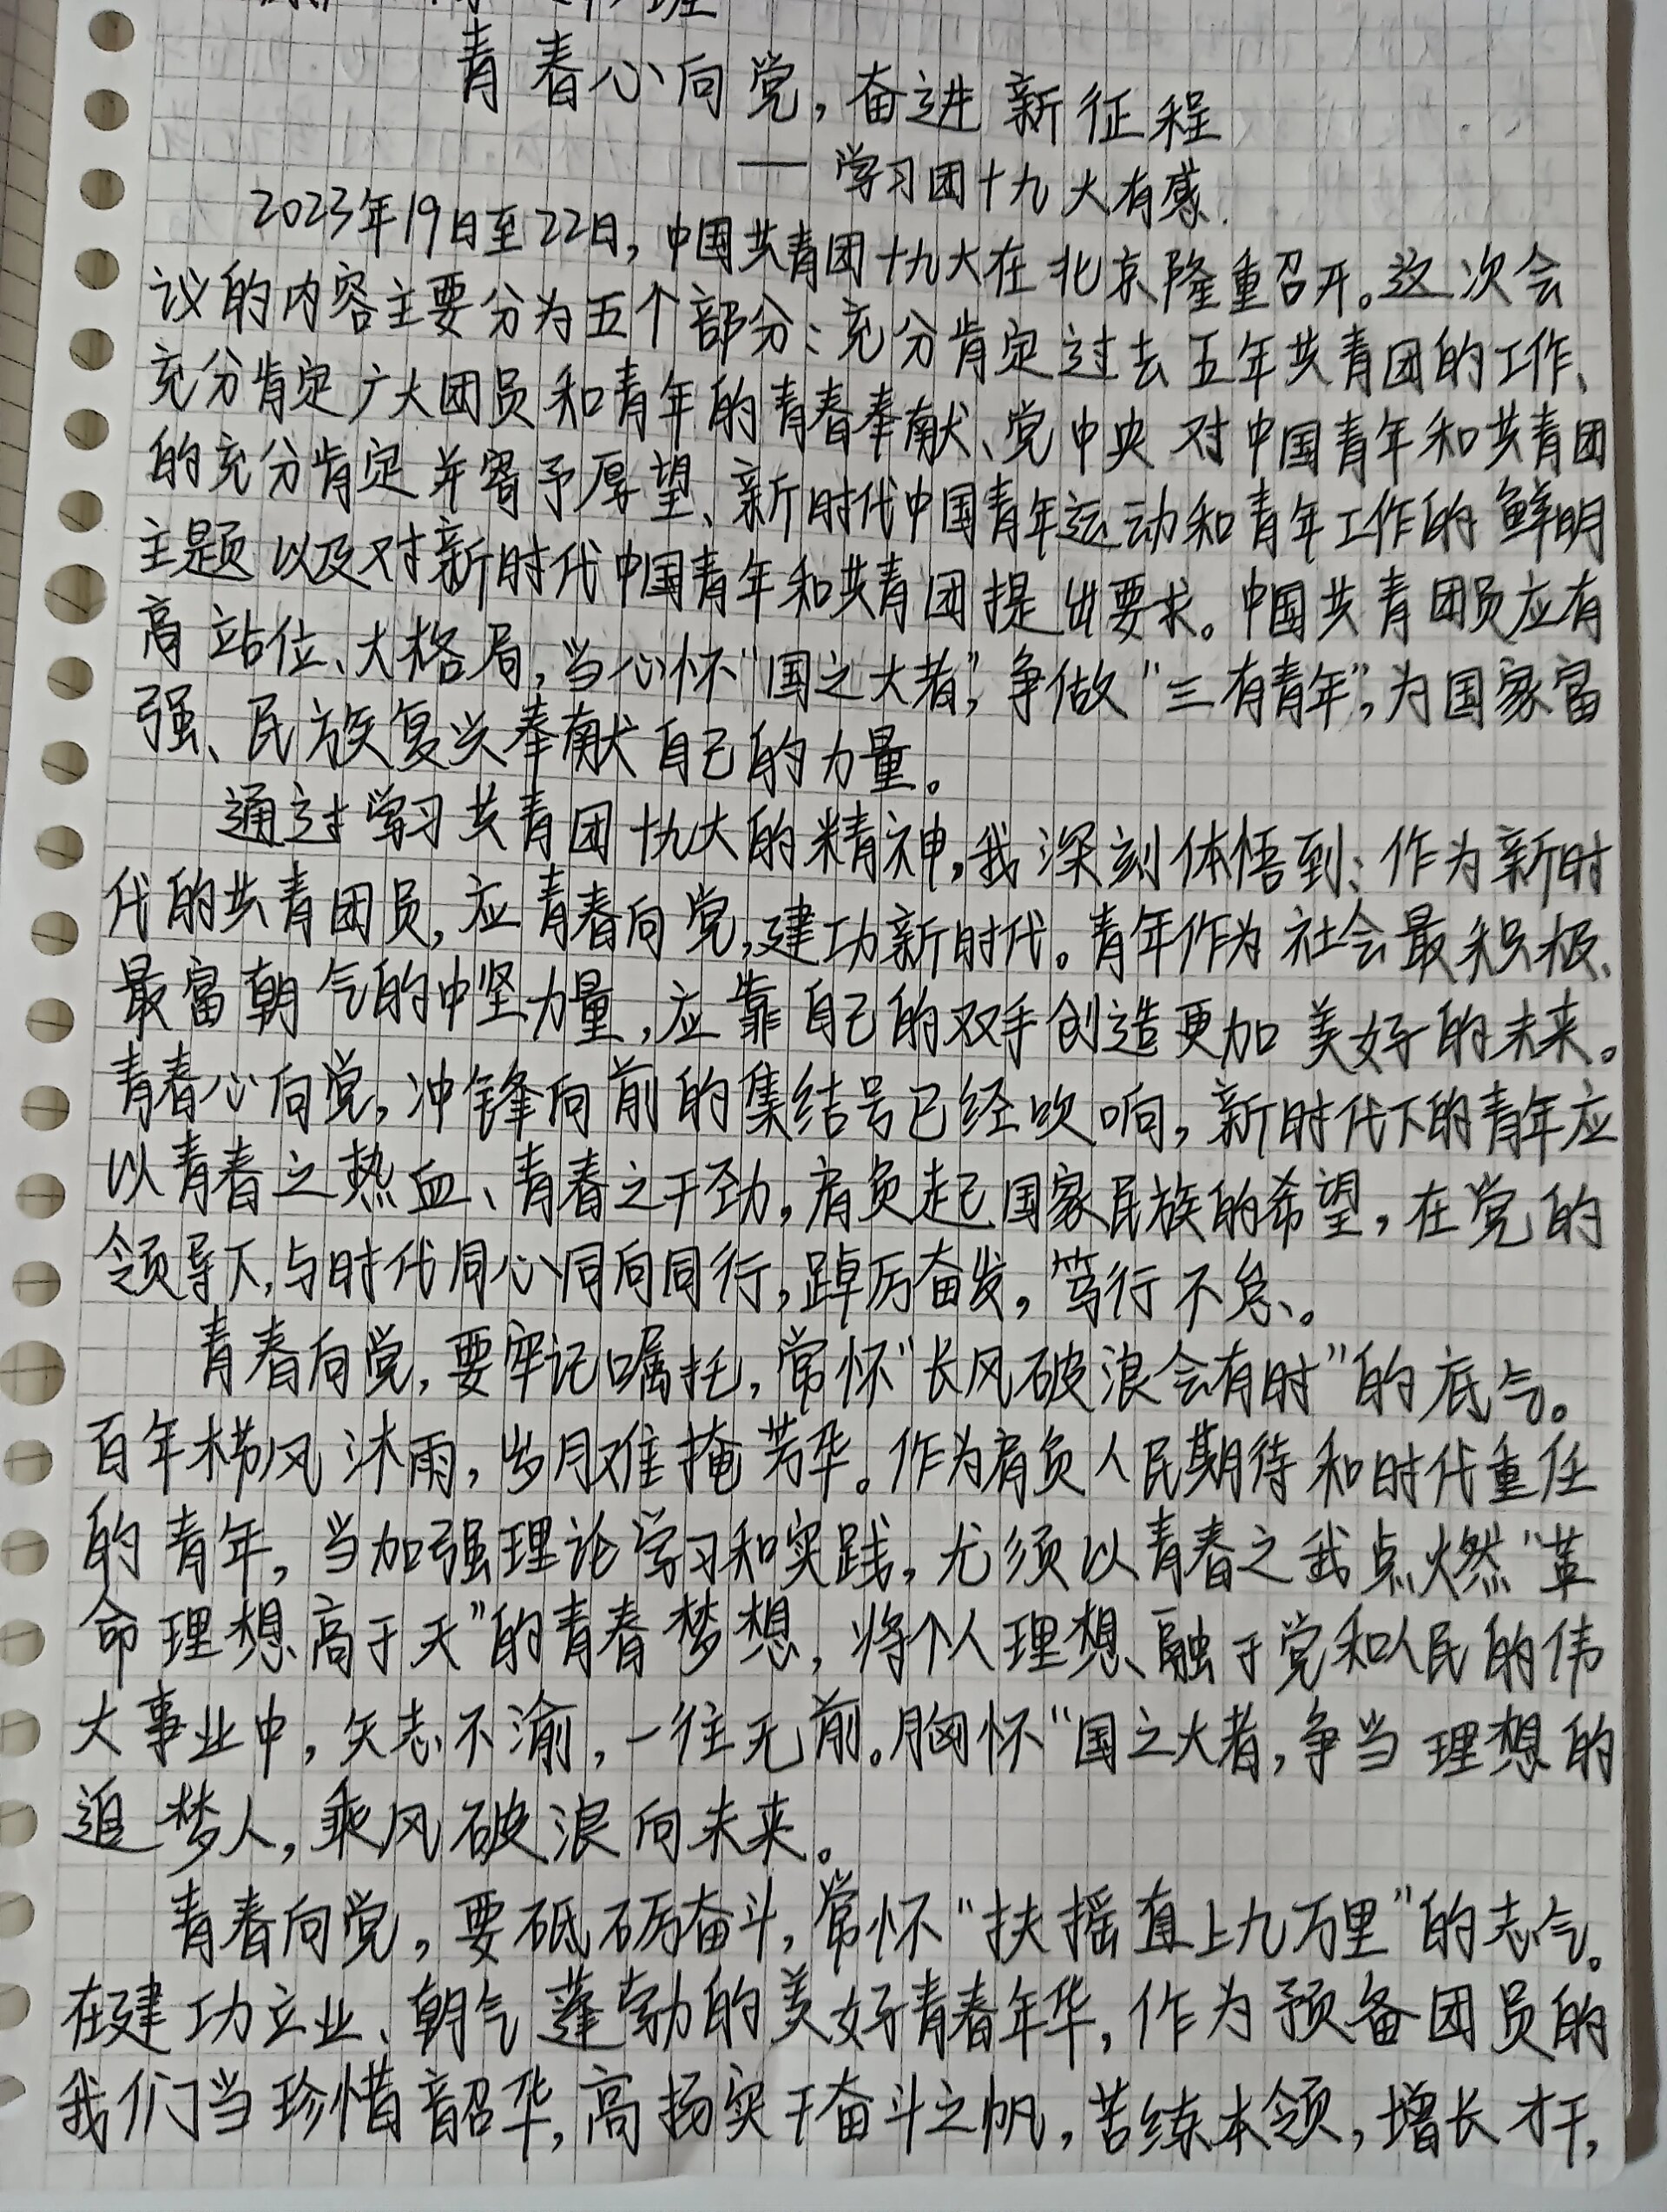 青春心向党，奋进新征程
——学习团十九大有感.
2023年19日至22日，中国共青团十九大在北京隆重召开。这次会
议的内容主要分为五个部分：充分肯定过去五年共青团的工作、
充分肯定广大团员和青年的青春奉献、党中央对中国青年和共青团
的充分肯定并寄予厚望、新时代中国青年运动和青年工作的鲜明
主题以及对新时代中国青年和共青团提出要求。中国共青团员应有
高站位、大格局，当心怀“国之大者”，争做“三有青年”，为国家富
强、民族复兴奉献自己的力量。
通过学习共青团十九大的精神，我深刻体悟到：作为新时
代的共青团员，应青春向党，建功新时代。青年作为社会最积极、
最富朝气的中坚力量，应靠自己的双手创造更加美好的未来。
青春心向党，冲锋向前的集结号已经吹响，新时代下的青年应
以青春之热血、青春之干劲，肩负起国家民族的希望，在党的
领导下，与时代同心同向同行，踔厉奋发，笃行不怠。
青春向党，要牢记嘱托，常怀“长风破浪会有时”的底气。
百年栉风沐雨，岁月难掩芳华。作为肩负人民期待和时代重任
的青年，当加强理论学习和实践，尤须以青春之我点燃“革
命理想高于天”的青春梦想，将个人理想融于党和人民的伟
大事业中，矢志不渝，一往无前。胸怀“国之大者，争当理想的
追梦人，乘风破浪向未来。
青春向党，要砥砺奋斗，常怀“扶摇直上九万里”的志气。
在建功立业、朝气蓬勃的美好青春年华，作为预备团员的
我们当珍惜韶华，高扬实干奋斗之帆，苦练本领，增长才干，